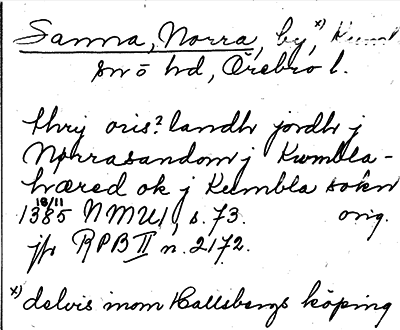 Sanna, Norra, by, x) Kumla
sn ö hd, Örebro l.
thry oris? landh jordh j
Norrasandom j Kumbla-
hæred ok j Kumbla sokn
18/11
1385 NMU 1, s. 73. orig.
jfr RPB II n. 2172.
x) delvis inom Hallsbergs köping